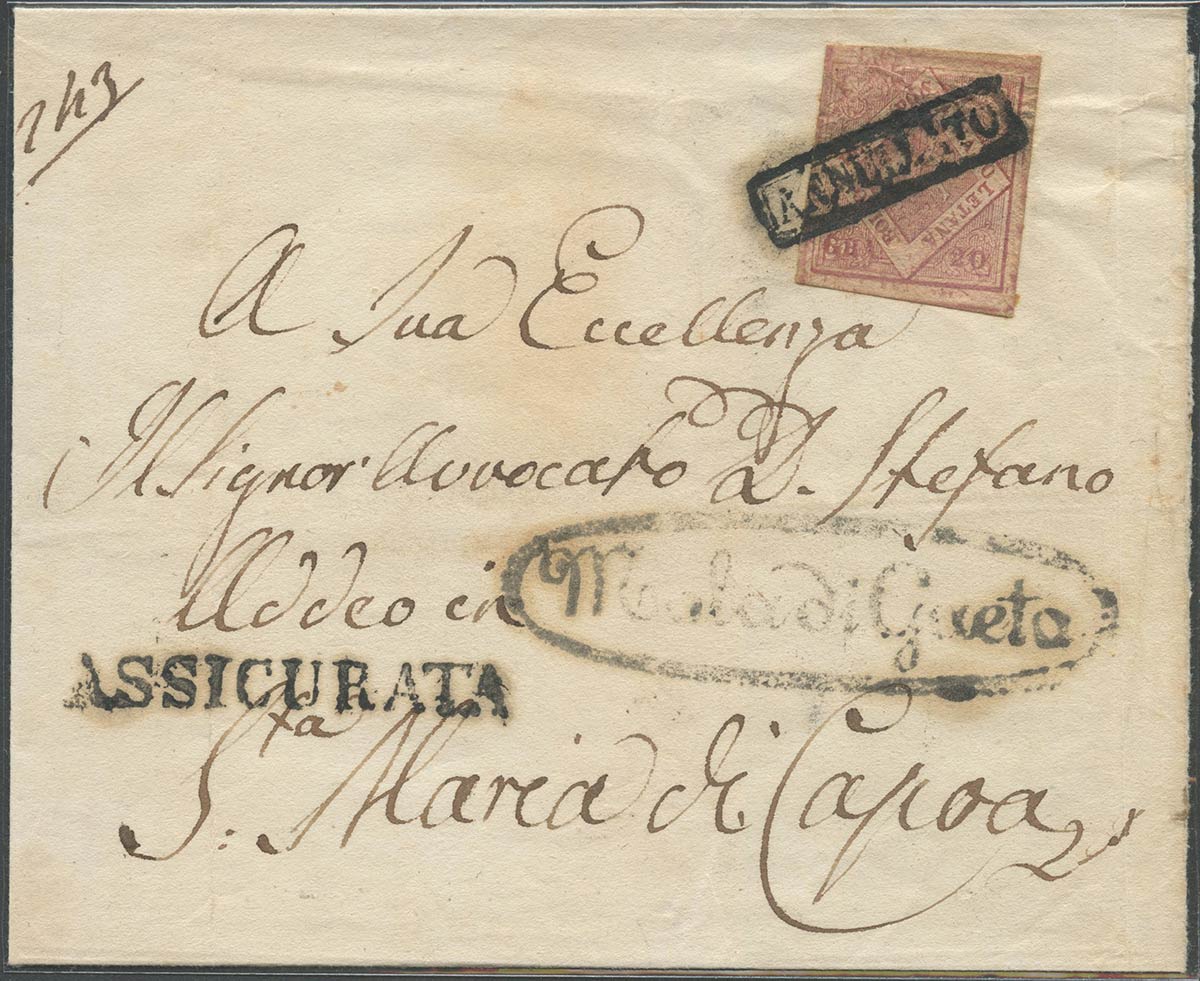 243
ANNULLATO
GRA 20
LETANA
A Sua Eccellenza
Il Signor Avvocato D. Stefano
Addeo in
Mola di Gaeta
ASSICURATA
S.ta Maria di Capoa